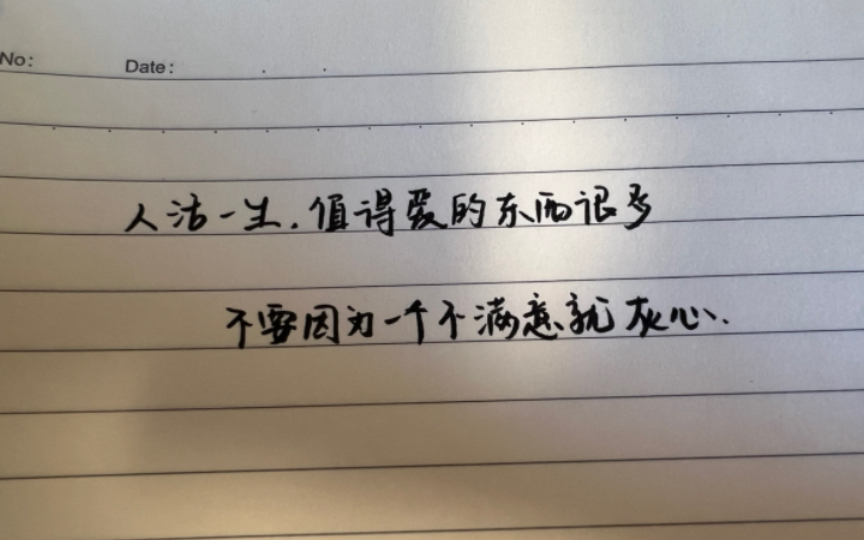 No: Date:
人活一生.值得爱的东西很多
不要因为一个不满意就灰心.